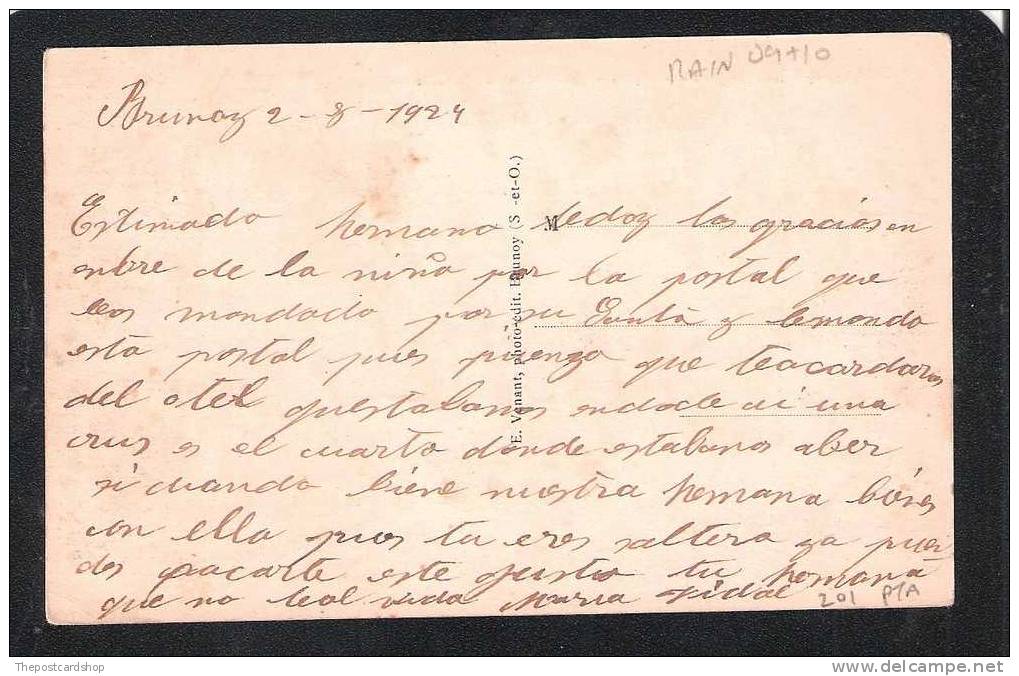 RAIN 09+10
Brunoy 2-8-1924
Estimado hemano ledoy las gracias en
onbre de la niña por la postal que
leas mandado por su Santa y lemondo
esta postal pues pienzo que teacardaras
del otel questabamos endode ai una
crus es el cuarto donde estabanos aber
si cuando biene nuestra hemana bienes
con ella pues tu eres saltero ya pue
des sacarte este gusto tu hemana
que no teol vida Maria Vidal
201 P/A
E. Vanant, photo-édit. Brunoy (S.-et-O.)
M
Thepostcardshop
www.delcampe.net